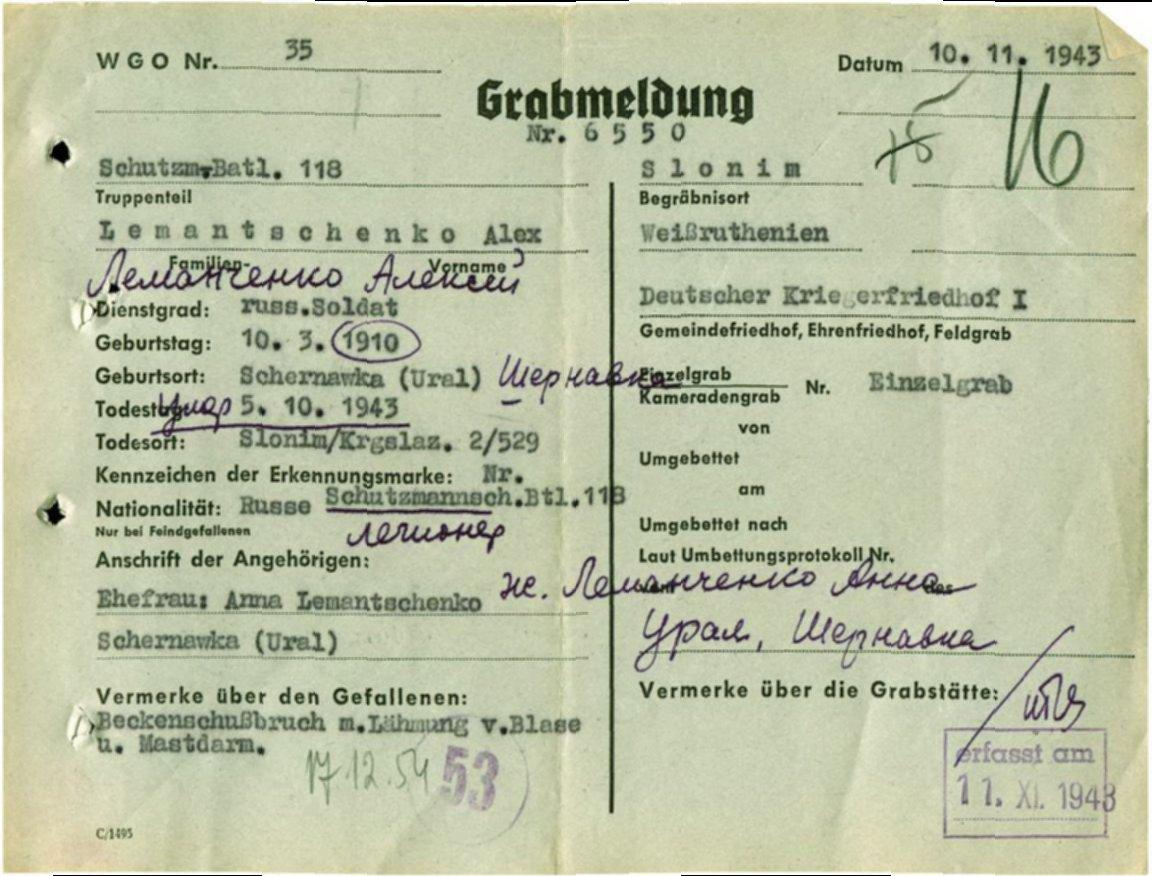 WGO Nr. 35
Datum 10. 11. 1943
Grabmeldung
Nr. 6550
16
Schutzm.Batl. 118
Truppenteil
Lemantschenko Alex
Familien- Vorname
Леманченко Алексей
Dienstgrad: russ.Soldat
Geburtstag: 10. 3. 1910
Geburtsort: Schernawka (Ural) Шернавка
Todestag: умер 5. 10. 1943
Todesort: Slonim/Krgslaz. 2/529
Kennzeichen der Erkennungsmarke: Nr.
Schutzmannsch.Btl.118
Nationalität: Russe
Nur bei Feindgefallenen
легионер
Anschrift der Angehörigen:
Ehefrau: Anna Lemantschenko
Schernawka (Ural)
Vermerke über den Gefallenen:
Beckenschußbruch m.Lähmung v.Blase
u. Mastdarm.
17.12.54
53
C/1495
Slonim
Begräbnisort
Weißruthenien
Deutscher Kriegerfriedhof I
Gemeindefriedhof, Ehrenfriedhof, Feldgrab
Einzelgrab
Kameradengrab
Nr. Einzelgrab
von
Umgebettet
am
Umgebettet nach
Laut Umbettungsprotokoll Nr.
vom des
ж. Леманченко Анна
Урал, Шернавка
Vermerke über die Grabstätte:
erfasst am
11. XI. 1943